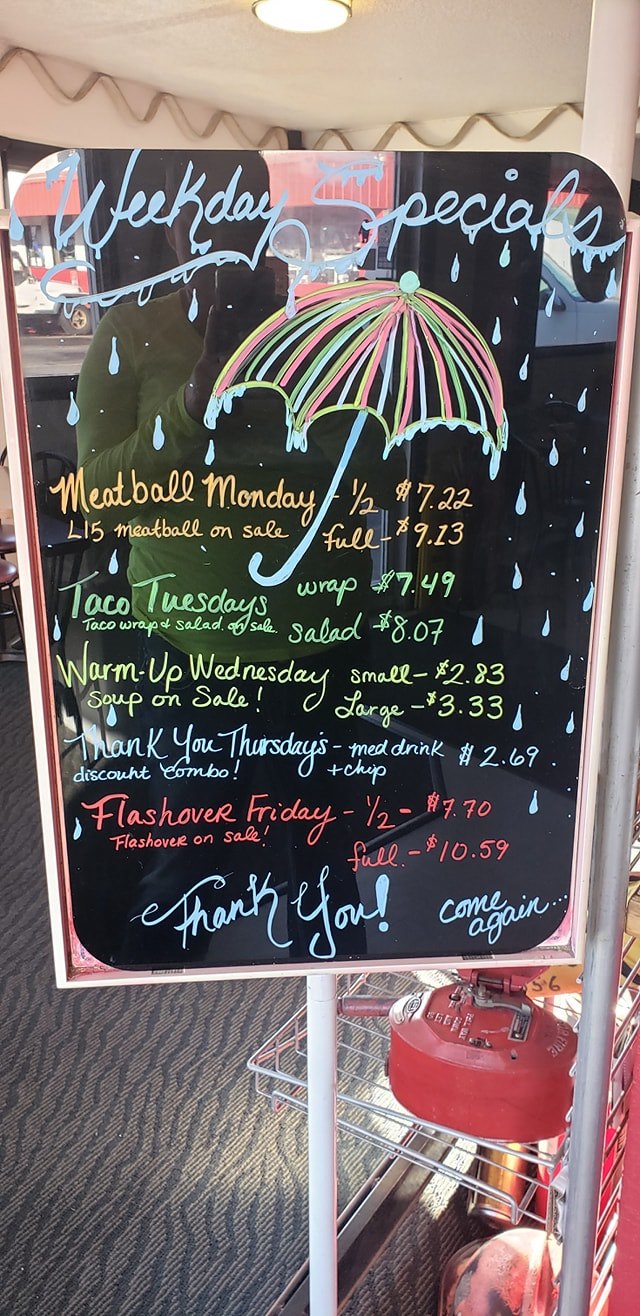 Weekday Specials
Meatball Monday - 1/2 $7.22
L15 meatball on sale full - $9.13
Taco Tuesdays wrap - $7.49
Taco wrap & salad on sale salad - $8.07
Warm-Up Wednesday small - $2.83
Soup on Sale! Large - $3.33
Thank You Thursday's - med drink $2.69
discount combo! + chip
Flashover Friday - 1/2 - $7.70
Flashover on sale!
full - $10.59
Thank You! come
again...
56